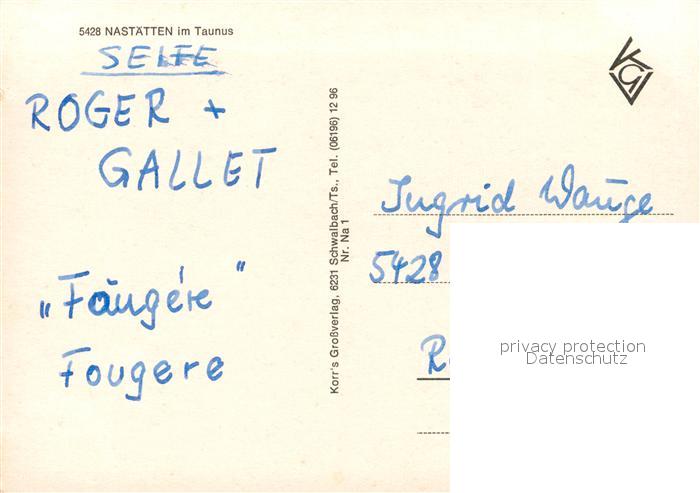 5428 NASTÄTTEN im Taunus
SEIFE
ROGER +
GALLET
„Fäugére"
Fougere
Korr's Großverlag, 6231 Schwalbach/Ts., Tel. (06196) 12 96
Nr. Na 1
KGV
Ingrid
5428
privacy protection
Datenschutz